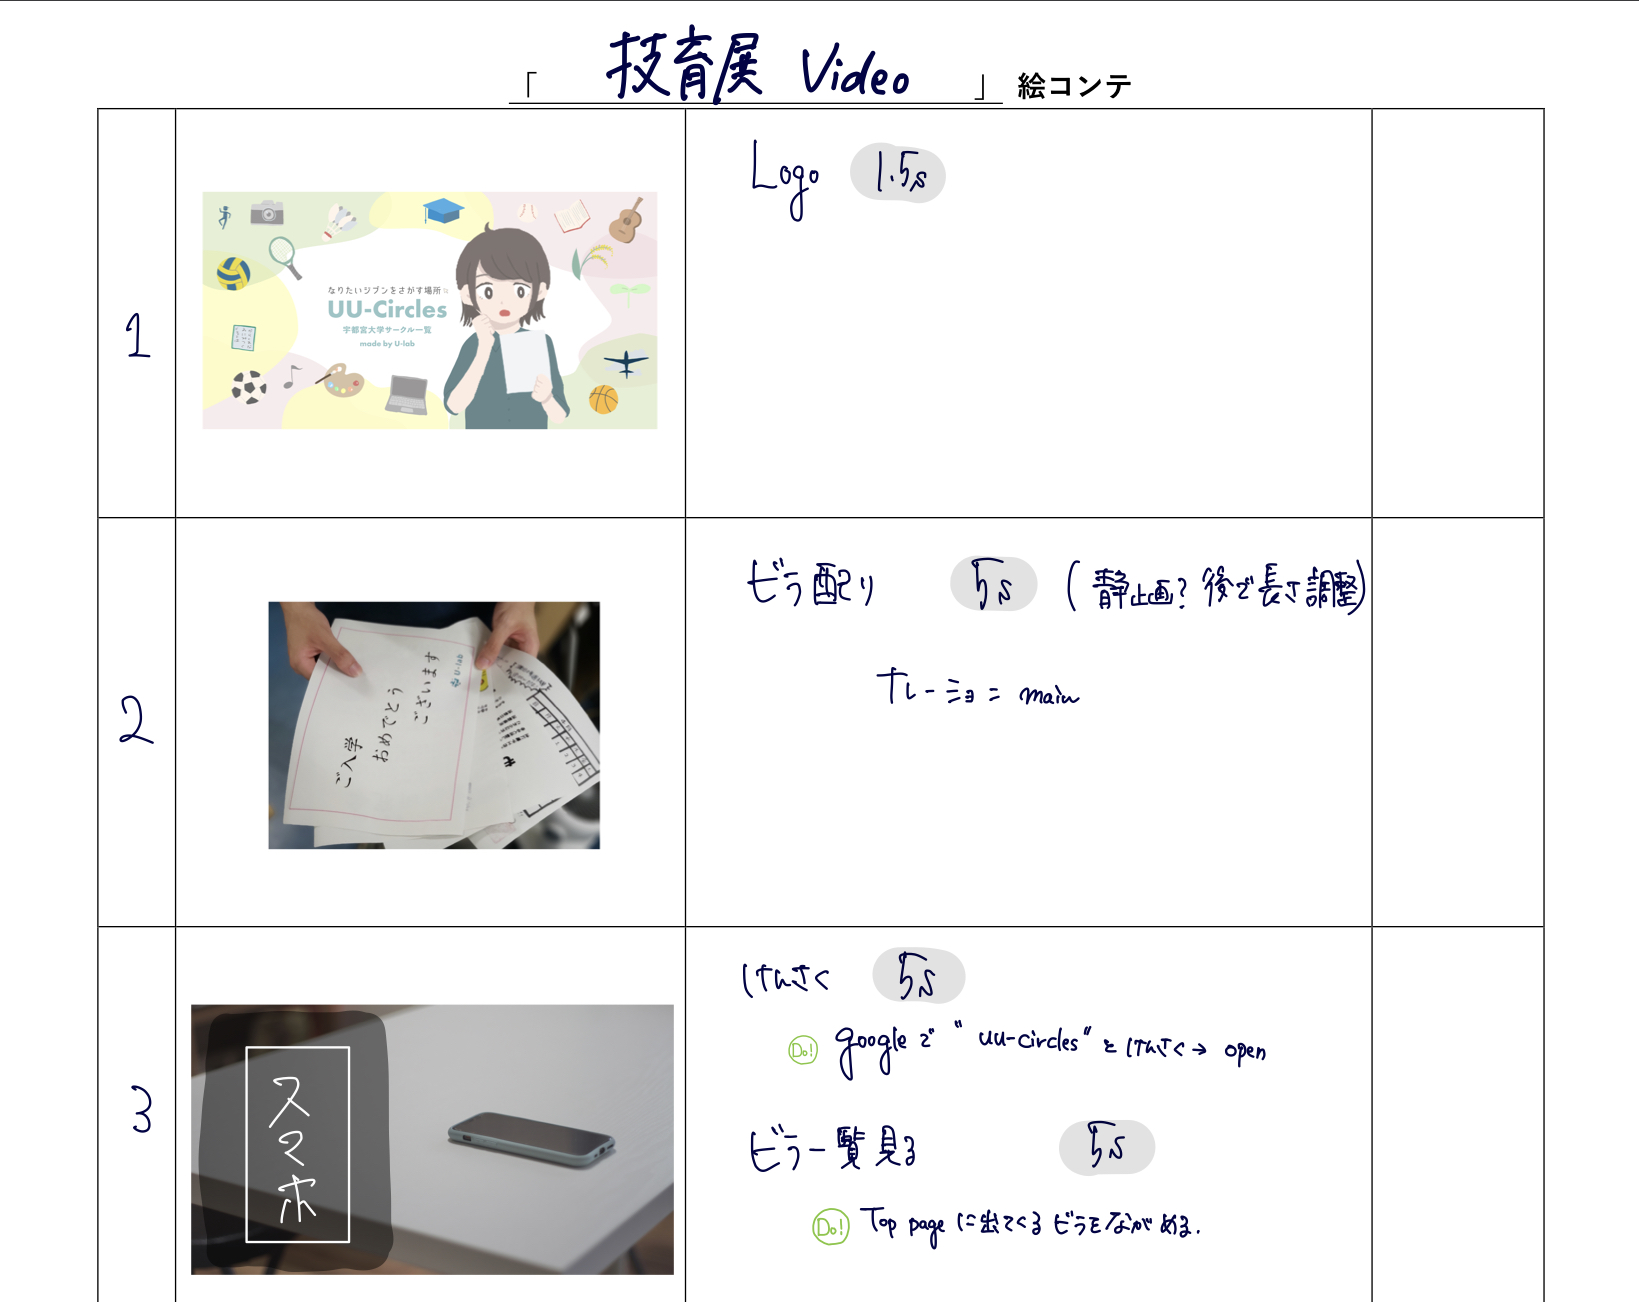 「技育展 Video」絵コンテ
1
なりたいジブンをさがす場所
UU-Circles
宇都宮大学サークル一覧
made by U-lab
Logo 1.5s
2
ご入学
おめでとう
ございます
U-lab
ビラ配り 5s (静止画? 後で長さ調整)
ナレーショ = main
3
スマホ
けんさく 5s
Do! googleで "uu-circles" とけんさく→ open
ビラ一覧見る 5s
Do! Top pageに出てくるビラをながめる.